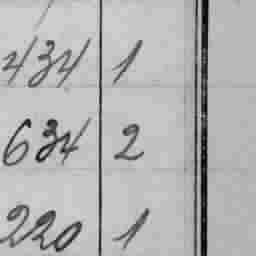 434 1
634 2
220 1